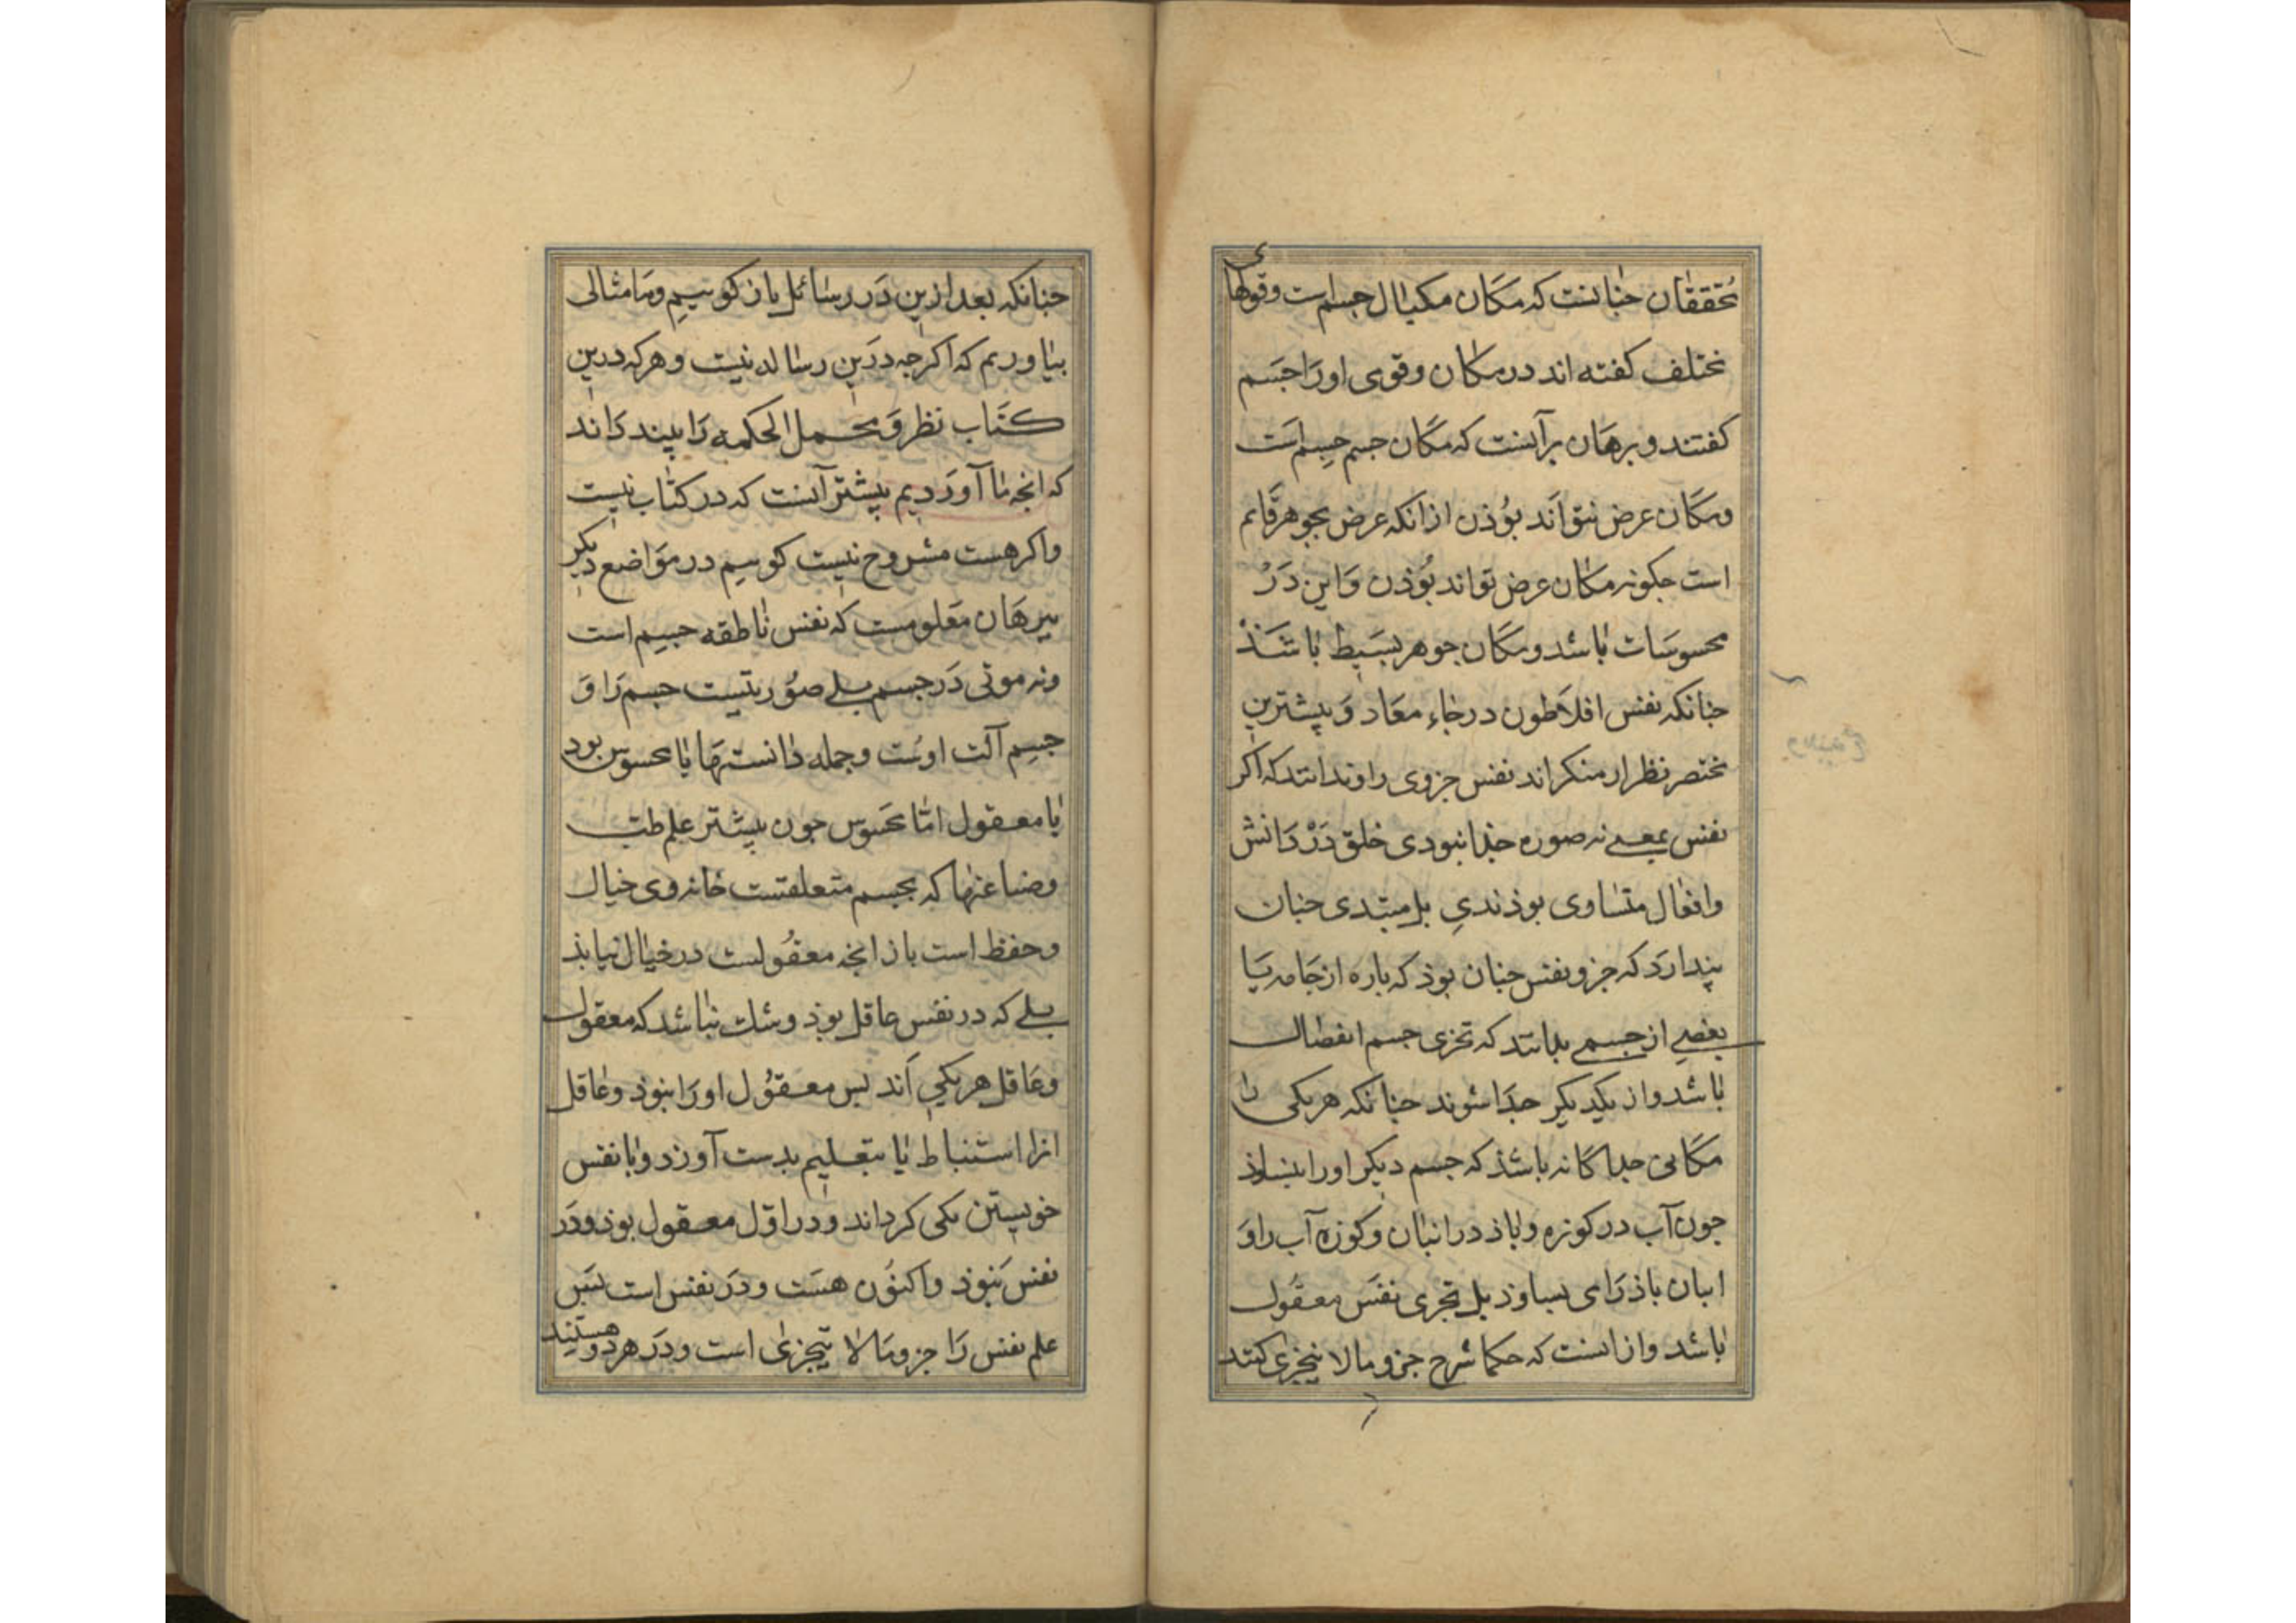 محققان جنانست که مکان مکیال جسم است وقولهای
مختلف کفته اند در مکان وقومی اورا جسم
کفتند و برهان برآنست که مکان جسم جسم است
ومکان عرض نتواند بوُذن ازانکه عرض بجوهر قایم
است جکونه مکان عرض تواند بوُذن واین دَر
محسوسات باشد ومکان جوهر بسیط باشذ
جنانکه نفس افلاطون درخاء معاد و بیشترین
مختصر نظرار منکراند نفس جزوی را وندانند که اکر
نفس بمعنے نه صوره جدا نبودی خلق دَرْ دَانش
وافعال متساوی بوذندی بل مبتدی جنان
پندارَد که جزو نفس جنان بوذ که باره از جامه یا
بعضے از جسمے بدانند که تجزی جسم انفصال
باشد واز یکدیکر جدا شوند جنانکه هریکی را
مکانی جداکانه باشذ که جسم دیکر اورا
جون آب در کوزه وباذ در انبان وکوزه آب را وَ
ابان باذ رَا می بساوذ بل تجزی نفس معقول
باشد وازانست که حکما شرح جزو مالا یتجزی کنند
جنانکه بعد ازین دَر رسائل باز کوییم وما مثالی
بیاوریم که اکرجه درین رساله نیست وهرکه درین
کتاب نظر وَ مجمل الحکمه رَا بیند دَاند
که انجه ما آوردیم بیشتر آنست که در کتاب نیست
واکر هست مشروح نیست کوییم در موَاضع دیکر
ببرهان مَعلومست که نفس ناطقه جسم است
ونه موتی دَر جسم بلے صوُرتیست جسم رَا وَ
جسم آلت اوست وجمله دانستها یا محسوس بود
یا معقول امّا محَسوس جون بیشتر علم طبّ
وضاعتها که بجسم متعلقست خانه وی خیال
وحفظ است باز انجه معقولست در خیال نیابذ
بلے که در نفس عاقل بوذ وشك نباشد که معقول
وعَاقل هریکی اَند بس معقوُل اورَا نبوذ وعاقل
انرا استنباط یا بتعلیم بدست آورد وبا نفس
خویستن یکی کرداند ودر اوّل معقول بوذ ودَر
نفس نَبوذ واکنوُن هسَت ودَر نفس است بس
علم نفس رَا جزو مَالا یتجزیٰ است ودَر هردو هستند